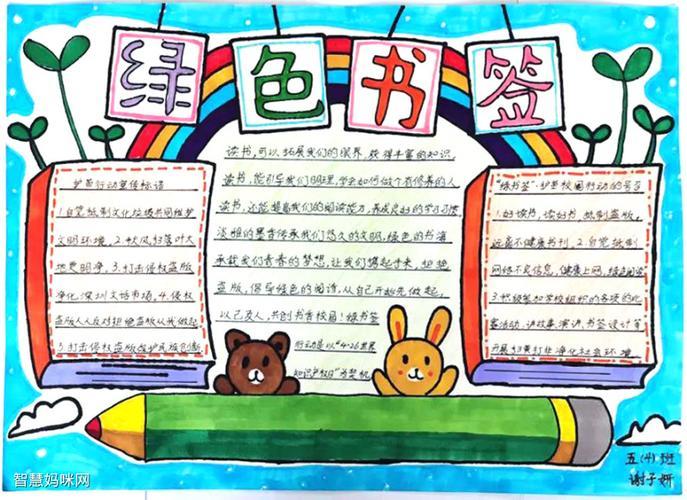 绿色书签
护苗行动宣传标语
1.自觉抵制文化垃圾共同维护
文明环境。2.秋风扫落叶大
地更明净。3.打击侵权盗版
净化深圳文化市场。4.侵权
盗版人人反对拒绝盗版从我做起
5.打击侵权盗版维护民族创新
读书,可以拓展我们的眼界,获得丰富的知识,
读书,能引导我们明理,学会如何做个有修养的人
读书,还能提高我们的阅读能力,养成良好的学习习惯,
淡雅的墨香传承我们悠久的文明,绿色的书海
承载我们青春的梦想,让我们携起手来,拒绝
盗版,倡导绿色的阅读,从自己开始先做起,
以己及人,共创书香校园!绿书签
行动是以“4·26世界
知识产权日”为契机
“绿书签”护苗校园行动的号召
1.好读书,读好书,抵制盗版,
远离不健康书刊。2.自觉抵制
网络不良信息,健康上网,绿色阅读
3.积极参加学校组织的各项的比
赛活动,讲故事,演讲,书签设计等
开展扫黄打非净化社会环境
智慧妈咪网
五(4)班
谢子妍